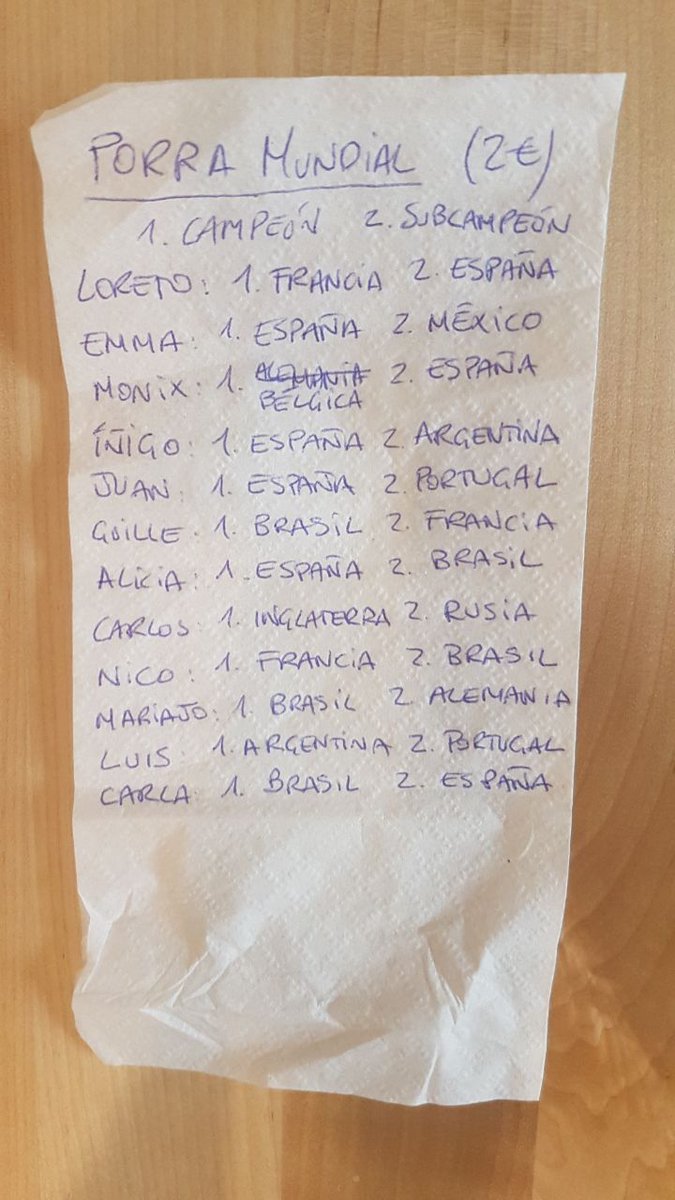 PORRA MUNDIAL (2€)
1. CAMPEÓN 2. SUBCAMPEÓN
LORETO: 1. FRANCIA 2. ESPAÑA
EMMA: 1. ESPAÑA 2. MÉXICO
MONIX: 1. ALEMANIA 2. ESPAÑA
BÉLGICA
ÍÑIGO: 1. ESPAÑA 2. ARGENTINA
JUAN: 1. ESPAÑA 2. PORTUGAL
GUILLE: 1. BRASIL 2. FRANCIA
ALICIA: 1. ESPAÑA 2. BRASIL
CARLOS: 1. INGLATERRA 2. RUSIA
NICO: 1. FRANCIA 2. BRASIL
MARIAJO: 1. BRASIL 2. ALEMANIA
LUIS: 1. ARGENTINA 2. PORTUGAL
CARLA: 1. BRASIL 2. ESPAÑA